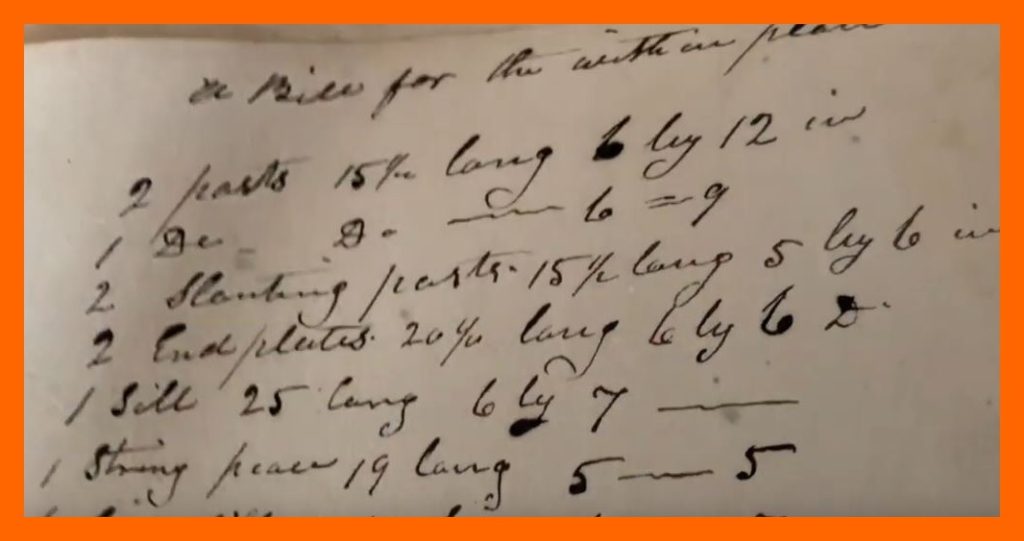 a Bill for the within plan
2 posts 15 ft long 6 by 12 in
1 Do D. — 6 = 9
2 Slanting posts. 15 ft long 5 by 6 in
2 End plates. 20 ft long 6 by 6 D.
1 Sill 25 long 6 by 7 —
1 String peace 19 long 5 — 5